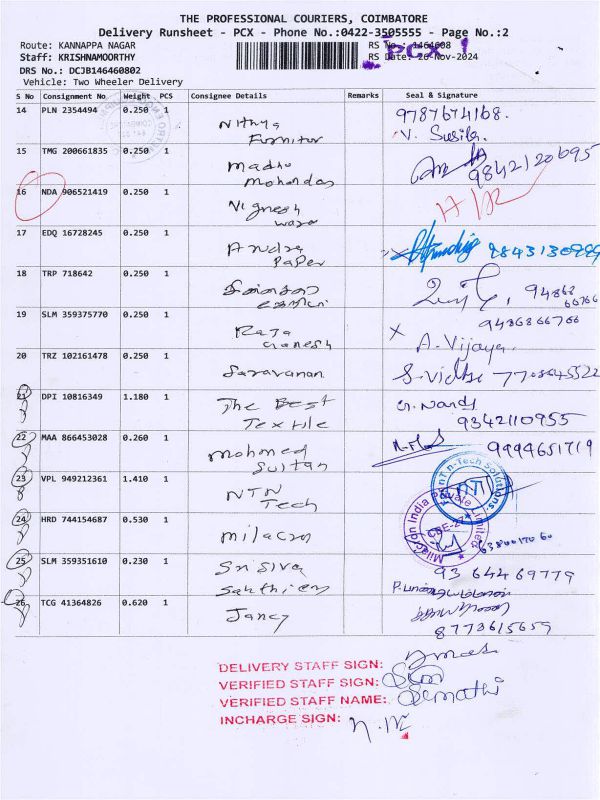 THE PROFESSIONAL COURIERS, COIMBATORE
Delivery Runsheet - PCX - Phone No.:0422-3505555 - Page No.:2
Route: KANNAPPA NAGAR RS No.: 1464608
Staff: KRISHNAMOORTHY RS Date: 26-Nov-2024
PCX 1
DRS No.: DCJB146460802
Vehicle: Two Wheeler Delivery
S No Consignment No. Weight PCS Consignee Details Remarks Seal & Signature
14 PLN 2354494 0.250 1 Nithya 9787674168.
Furnitur V. Susila.
15 TMG 200661835 0.250 1 Madhu 9842120695
Mohandas
16 NDA 906521419 0.250 1 Vignesh
17 EDQ 16728245 0.250 1 Andra
Paper
18 TRP 718642 0.250 1
19 SLM 359375770 0.250 1 Raja 9486866766
Ganesh A. Vijaya.
20 TRZ 102161478 0.250 1 Saravanan
21 DPI 10816349 1.180 1 The Best
Textile 9342110955
22 MAA 866453028 0.260 1 Mohmed 9994651719
Sultan
23 VPL 949212361 1.410 1 NTN
Tech
24 HRD 744154687 0.530 1 Milacron
25 SLM 359351610 0.230 1 Sri Siva 9364469779
26 TCG 41364826 0.620 1 Jancy
8773615659
DELIVERY STAFF SIGN:
VERIFIED STAFF SIGN:
VERIFIED STAFF NAME:
INCHARGE SIGN: